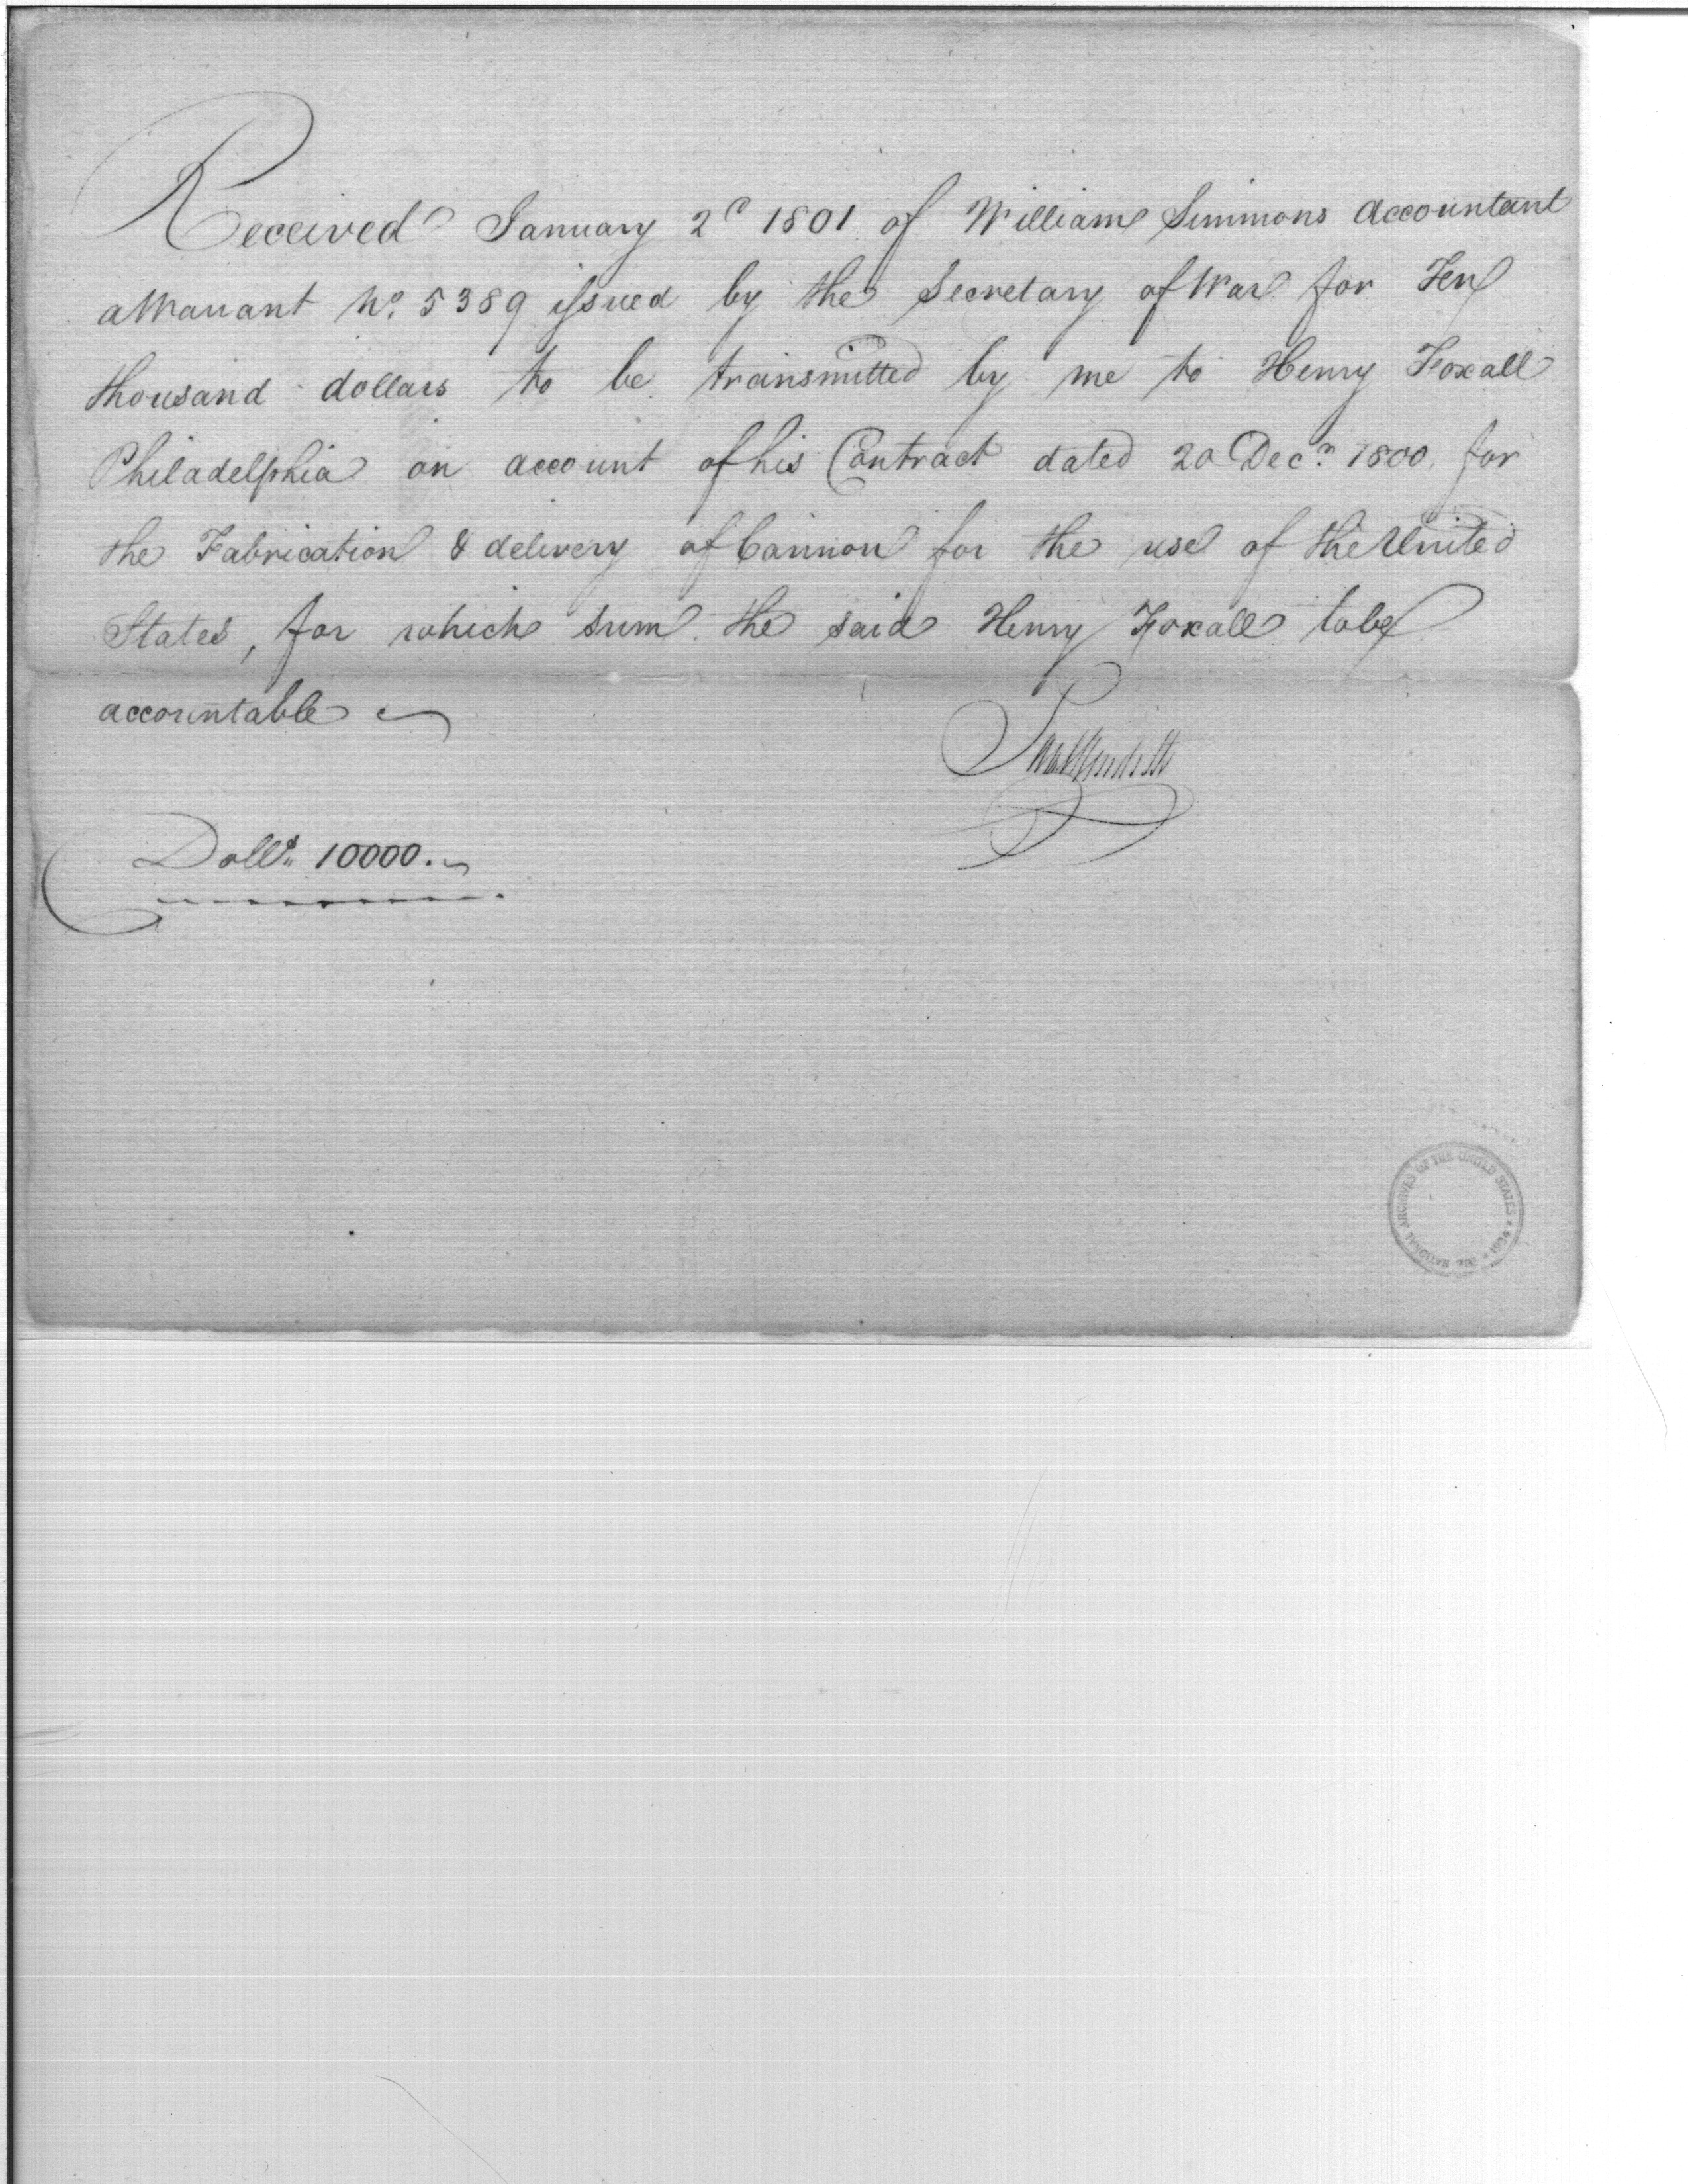 Received January 2d 1801 of William Simmons Accountant
a Warrant No. 5389 issued by the Secretary of War for Ten
thousand dollars to be transmitted by me to Henry Foxall
Philadelphia on account of his Contract dated 20 Decr. 1800 for
the Fabrication & delivery of Cannon for the use of the United
States, for which sum the said Henry Foxall to be
accountable
Dolls. 10000.
THE NATIONAL ARCHIVES OF THE UNITED STATES * 1934 *